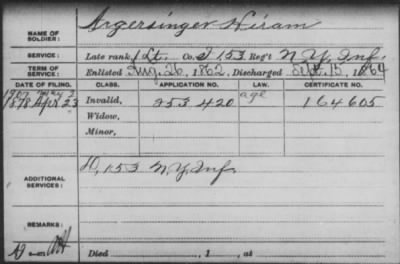 NAME OF SOLDIER: Argersinger Hiram
SERVICE: Late rank, 1 Lt. Co. I 153 Reg't N Y. Inf.
TERM OF SERVICE: Enlisted Aug. 26, 1862, Discharged Sept. 15, 1864
DATE OF FILING. CLASS. APPLICATION NO. LAW. CERTIFICATE NO.
1907 May 3 age
1878 Apr 23 Invalid, 253 420 164605
Widow,
Minor,
ADDITIONAL SERVICES: D, 153 N. Y. Inf.
REMARKS:
Died , 1 , at